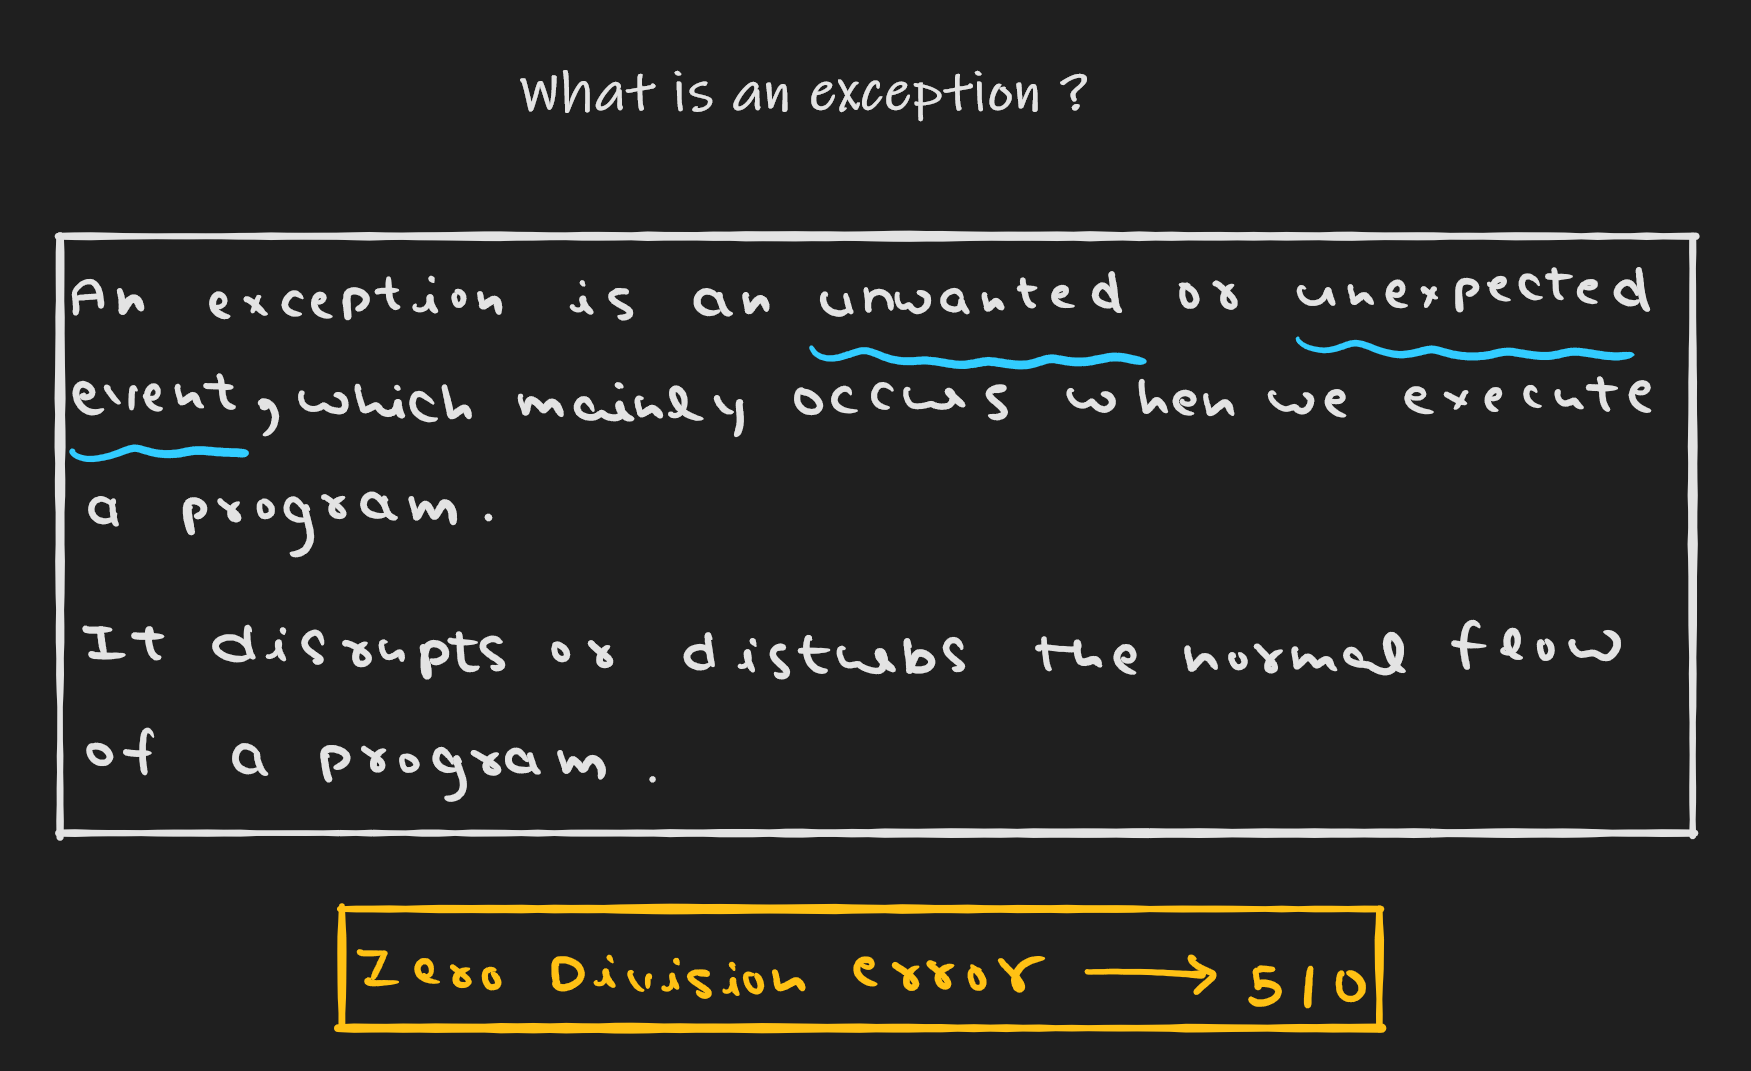 What is an exception ?
An exception is an unwanted or unexpected
event, which mainly occurs when we execute
a program.
It disrupts or disturbs the normal flow
of a program.
Zero Division error → 5/0